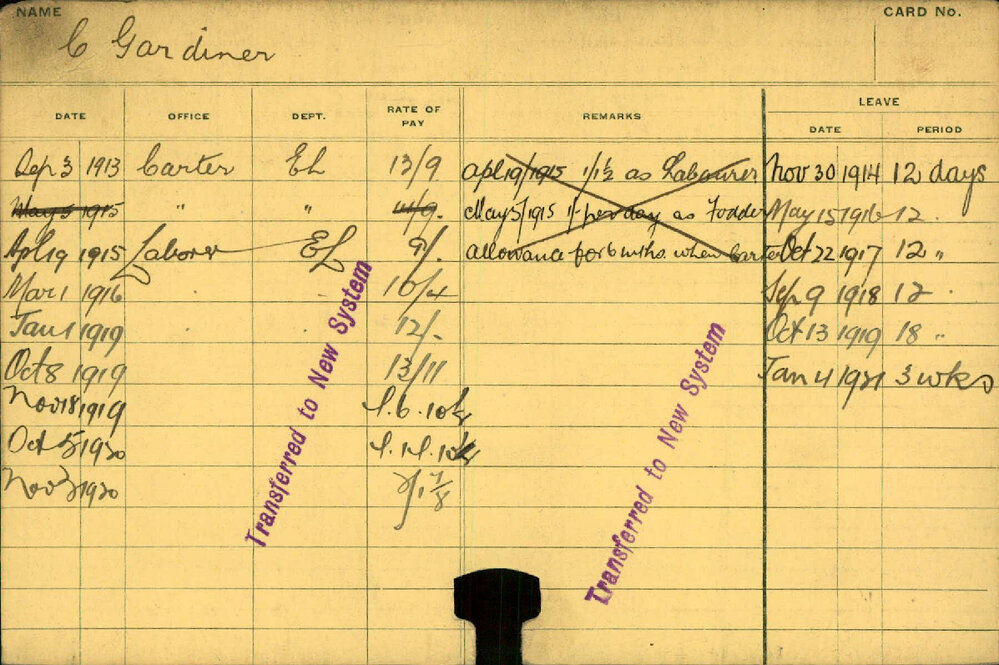 NAME CARD No.
C Gardiner
LEAVE
DATE OFFICE DEPT. RATE OF PAY REMARKS DATE PERIOD
Sep 3 1913 Carter EL 13/9 Apl 19/1915 1/1½ as Labourer Nov 30 1914 12 days
May 5 1915 " " May 5/1915 1/- per day as Fodder May 15 1916 12 "
Apl 19 1915 Laborer EL 9/- allowance for 6 mths. when Carter Oct 22 1917 12 "
Mar 1 1916 " " 10/4 Sep 9 1918 12 "
Jan 1 1919 " " 12/- Oct 13 1919 18 "
Oct 8 1919 13/11 Jan 4 1921 3 wks
Nov 18 1919
Oct 5 1920
Nov 1920
Transferred to New System
Transferred to New System